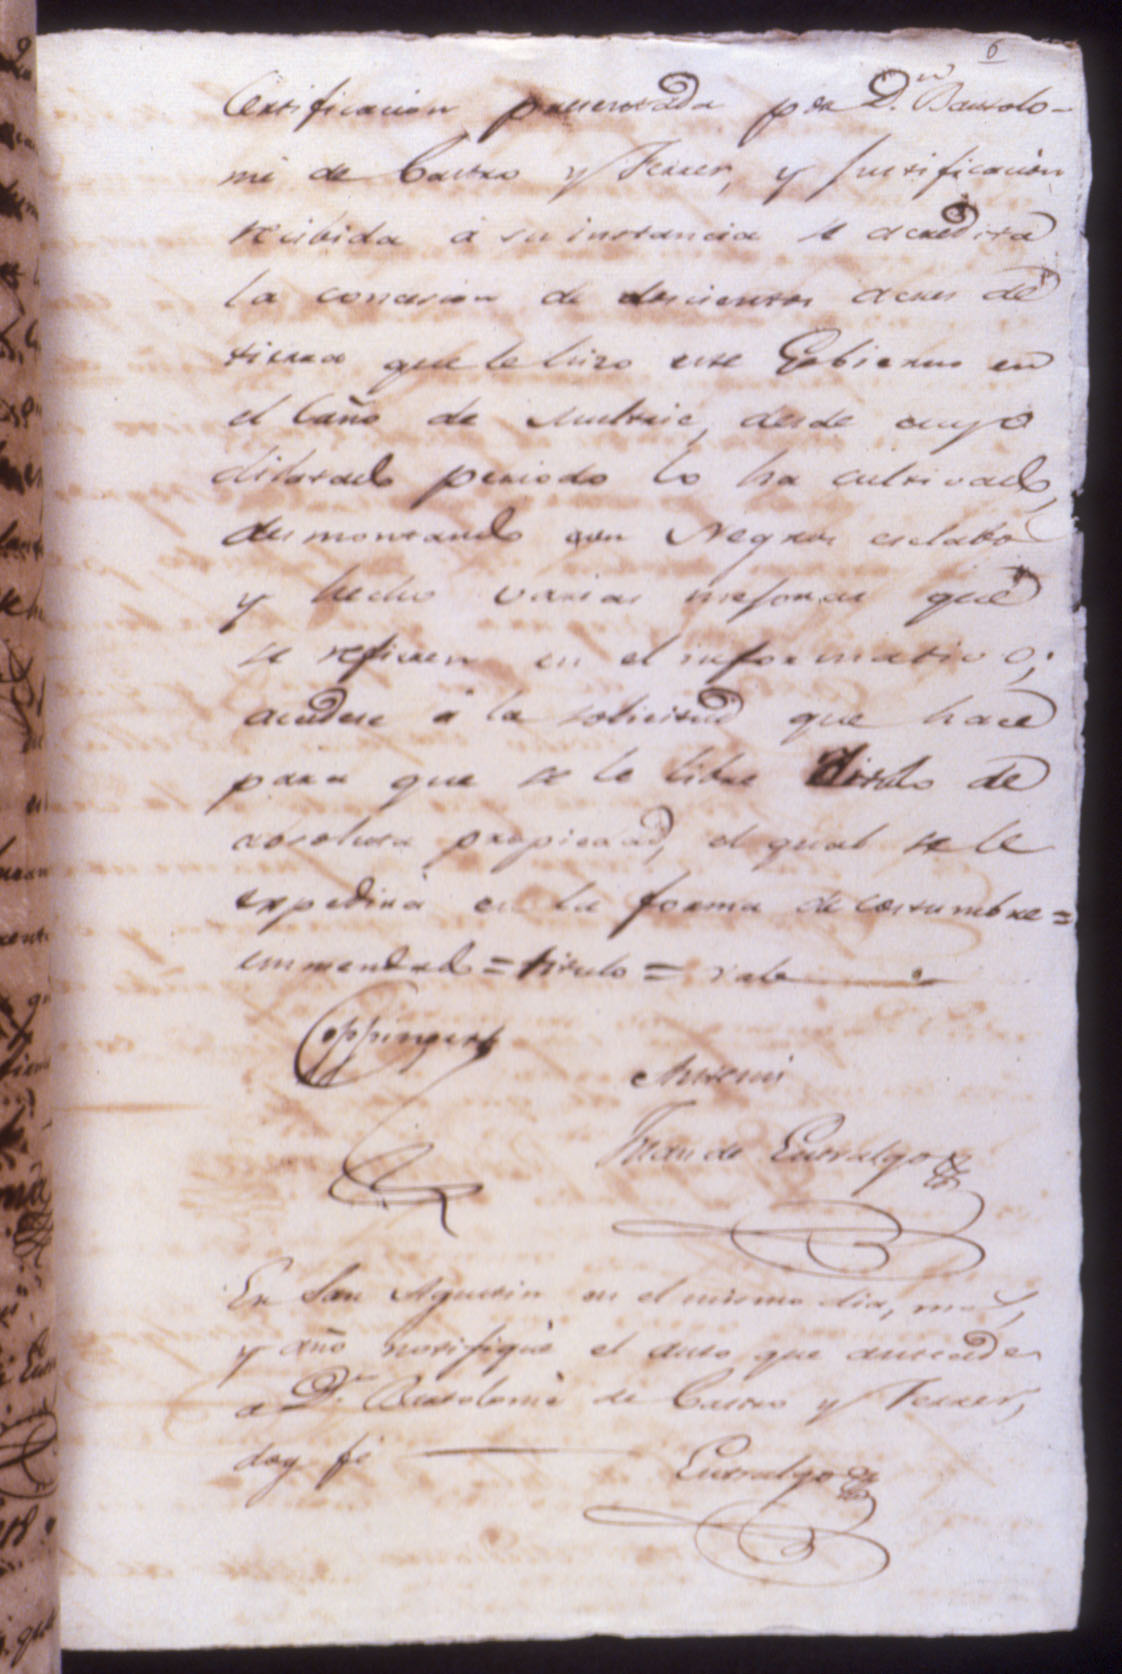 6
Certificacion presentada por Dn. Bartolo-
mé de Castro y Ferrer, y justificación
recibida á su instancia se acredita
la concesion de doscientos acres de
tierra que le hizo este Gobierno en
el Caño de Multrie, desde cuyo
dilatado periodo lo ha cultivado,
desmontando con Negros esclabos
y hecho varias mejoras que
se refieren en el informativo;
acudese á la solicitud que hace
para que se le libre titulo de
absoluta propiedad, el qual se le
expedirá en la forma de costumbre=
emmendado=titulo=vale
Coppinger
Ante mi
Juan de Entralgo
En San Agustin en el mismo dia, mes,
y año notifiqué el auto que antecede
a Dn. Bartolomé de Castro y Ferrer,
doy fé
Entralgo